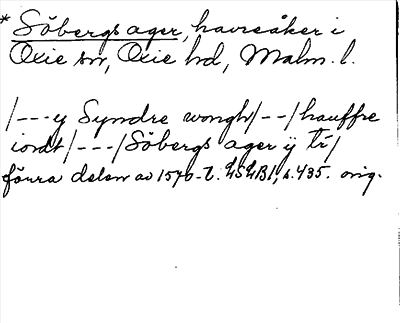 * Söbergs ager, havreåker i
Oxie sn, Oxie hd, Malm. l.
/---y Syndre wongh/--/hauffre
iordt/---/Söbergs ager ÿ tī/
förra delen av 1570-t. s. 435. orig.